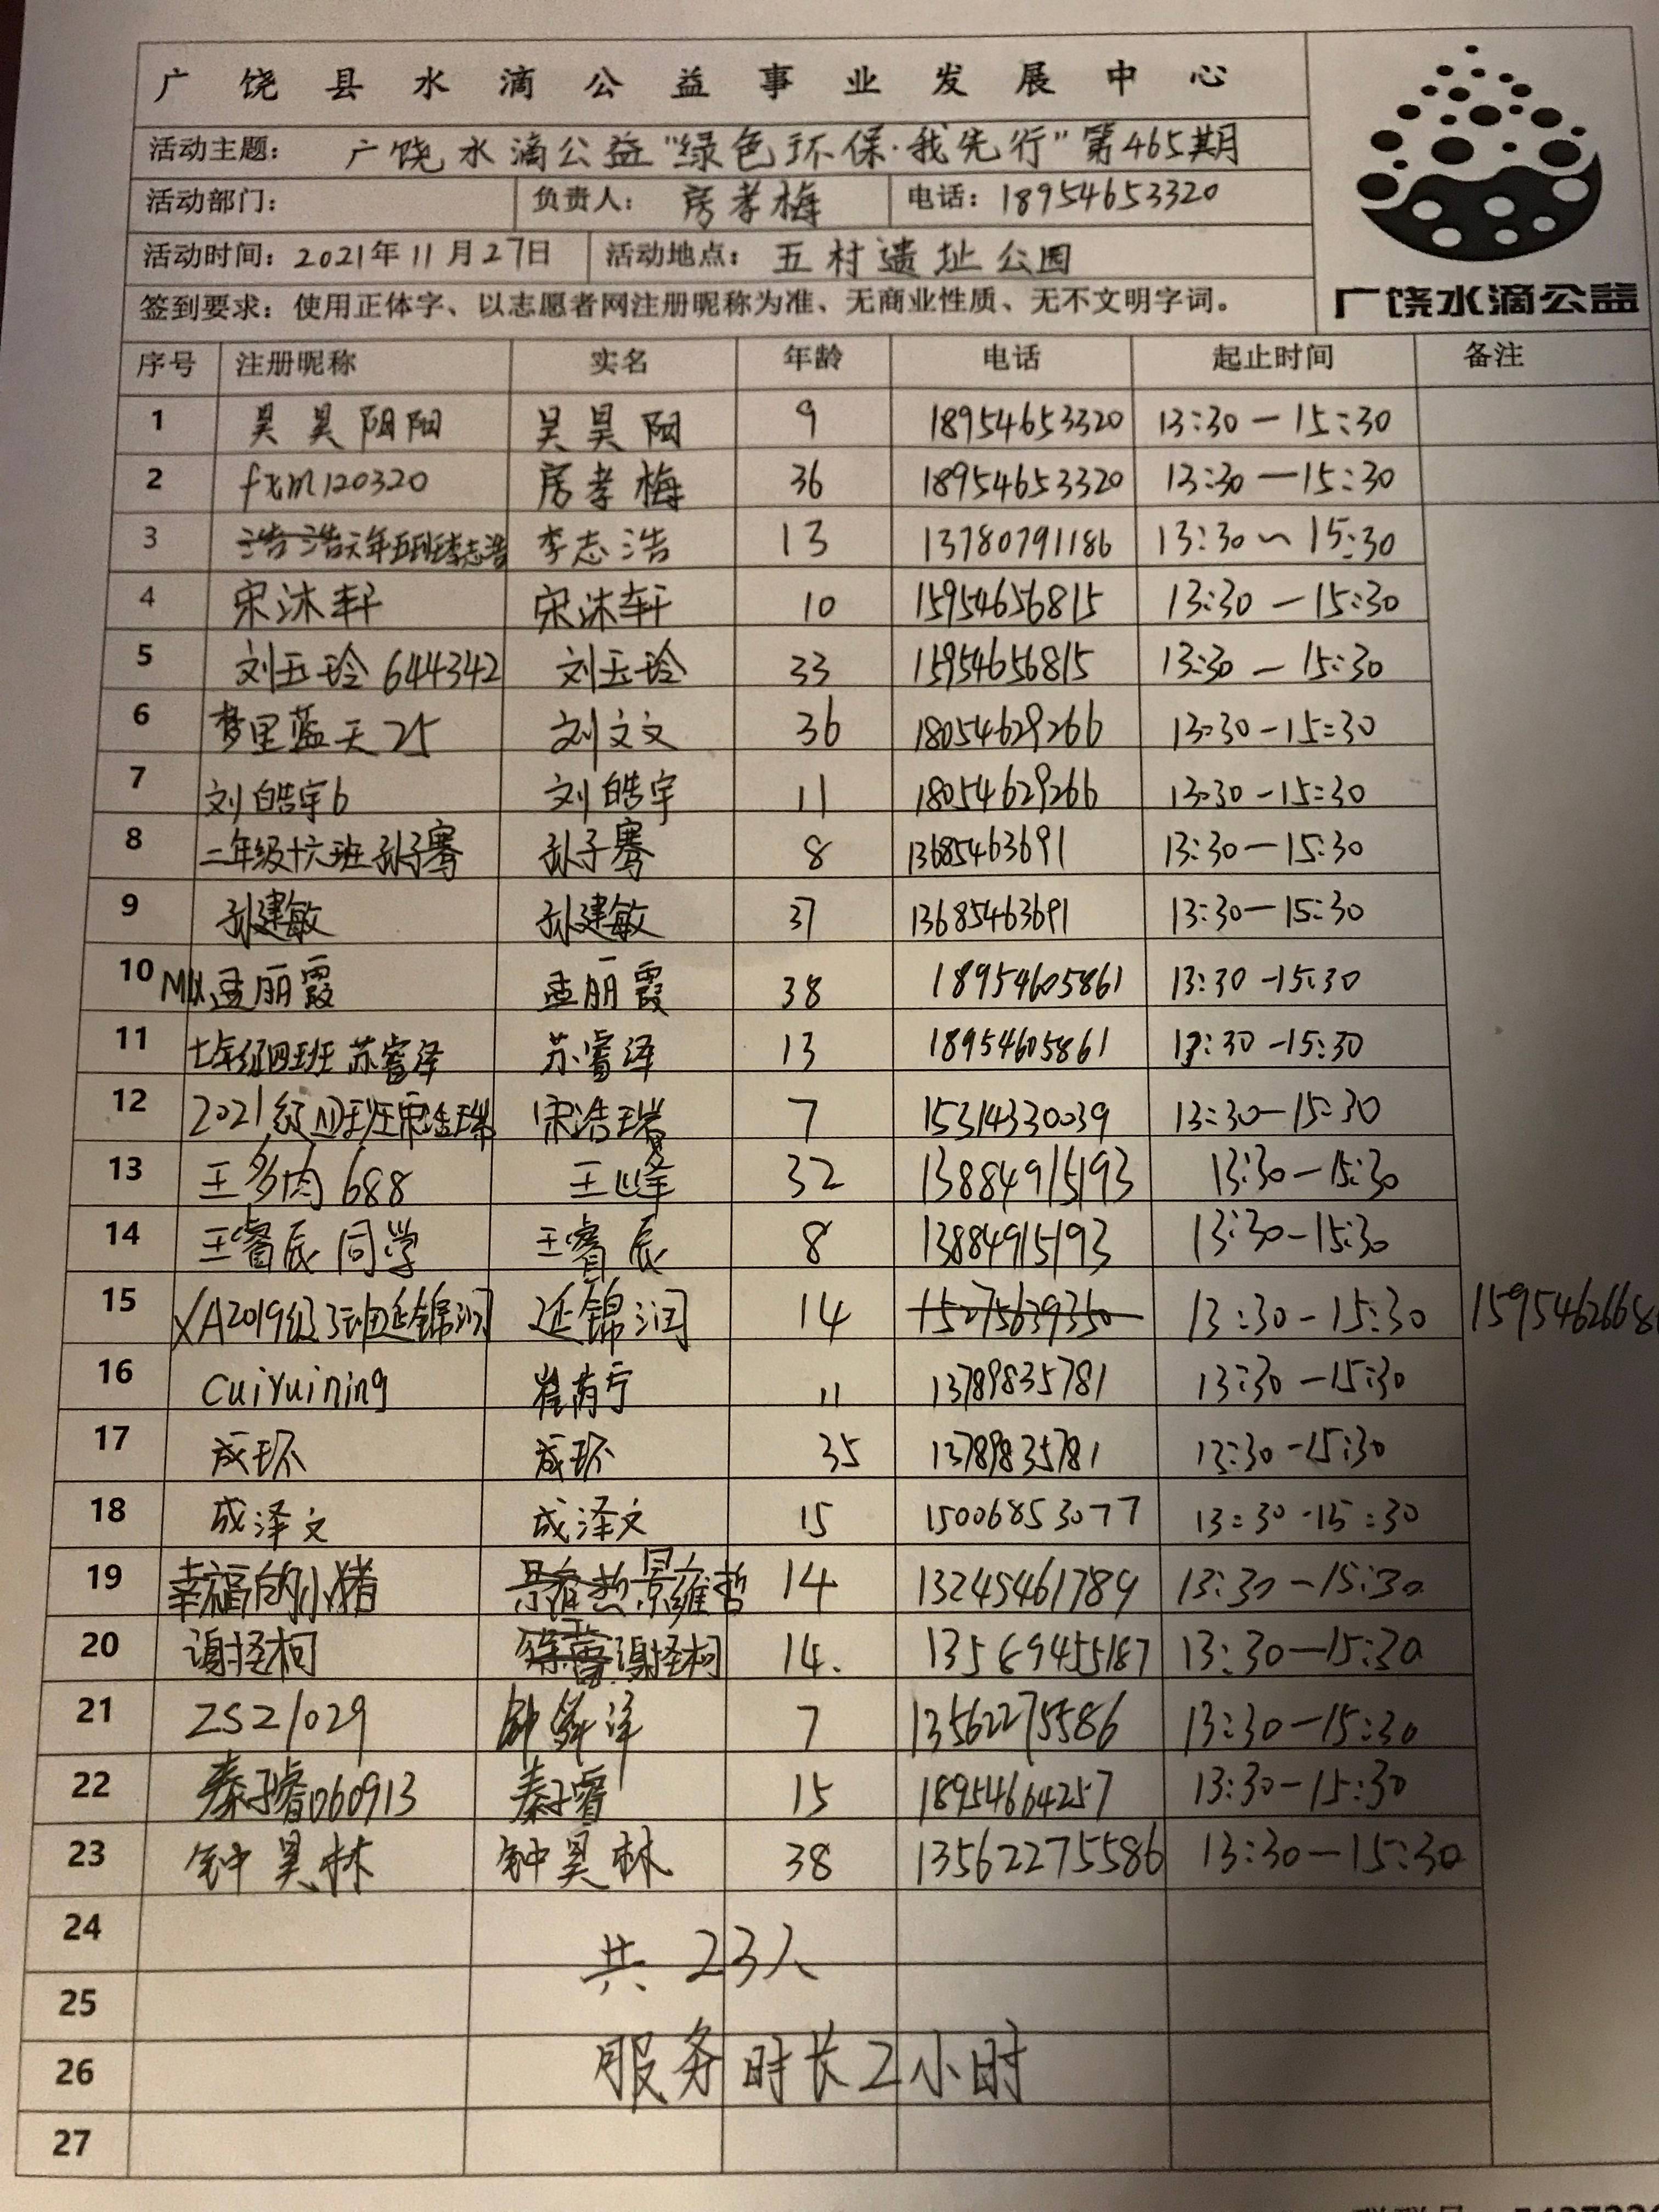 广饶县水滴公益事业发展中心
活动主题： 广饶水滴公益"绿色环保·我先行"第465期
活动部门： 负责人： 房孝梅 电话：18954653320
活动时间：2021年11月27日 活动地点： 五村遗址公园
签到要求：使用正体字、以志愿者网注册昵称为准、无商业性质、无不文明字词。
广饶水滴公益
序号 注册昵称 实名 年龄 电话 起止时间 备注
1 昊昊阳阳 吴昊阳 9 18954653320 13:30—15:30
2 fxm120320 房孝梅 36 18954653320 13:30—15:30
3 六年五班李志浩 李志浩 13 13780791186 13:30~15:30
4 宋沐轩 宋沐轩 10 15954656815 13:30—15:30
5 刘玉玲644342 刘玉玲 33 15954656815 13:30—15:30
6 梦里蓝天25 刘文文 36 18054629266 13:30-15:30
7 刘皓宇6 刘皓宇 11 18054629266 13:30-15:30
8 二年级十六班孙子骞 孙子骞 8 13685463691 13:30—15:30
9 孙建敏 孙建敏 37 13685463691 13:30—15:30
10 孟丽霞 孟丽霞 38 18954605861 13:30-15:30
11 七年级四班苏睿泽 苏睿泽 13 18954605861 13:30-15:30
12 2021级四班宋浩瑞 宋浩瑞 7 15314330039 13:30—15:30
13 王多肉688 王峰 32 13884915193 13:30—15:30
14 王睿辰同学 王睿辰 8 13884915193 13:30—15:30
15 XA2019级3班延锦润 延锦润 14 15275639350 13:30-15:30 1595462668
16 Cuiruining 崔芮宁 11 13789835781 13:30—15:30
17 成环 成环 35 13789835781 13:30-15:30
18 成泽文 成泽文 15 15006853077 13:30-15:30
19 幸福的小猪 景维哲 14 13245461789 13:30—15:30
20 谢柯 谢柯 14. 13569455187 13:30—15:30
21 ZSZ1029 钟泽 7 13562275586 13:30—15:30
22 秦子睿060913 秦子睿 15 18954664257 13:30—15:30
23 钟昊林 钟昊林 38 13562275586 13:30—15:30
24 共23人
25
26 服务时长2小时
27